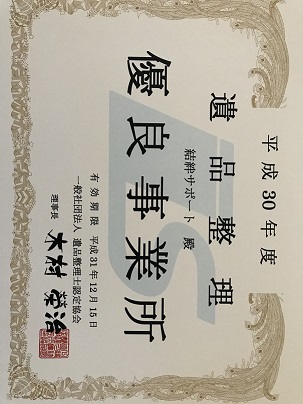 平成30年度
遺品整理
結絆サポート 殿
優良事業所
有効期限 平成31年12月15日
一般社団法人 遺品整理士認定協会
理事長 木村 榮治